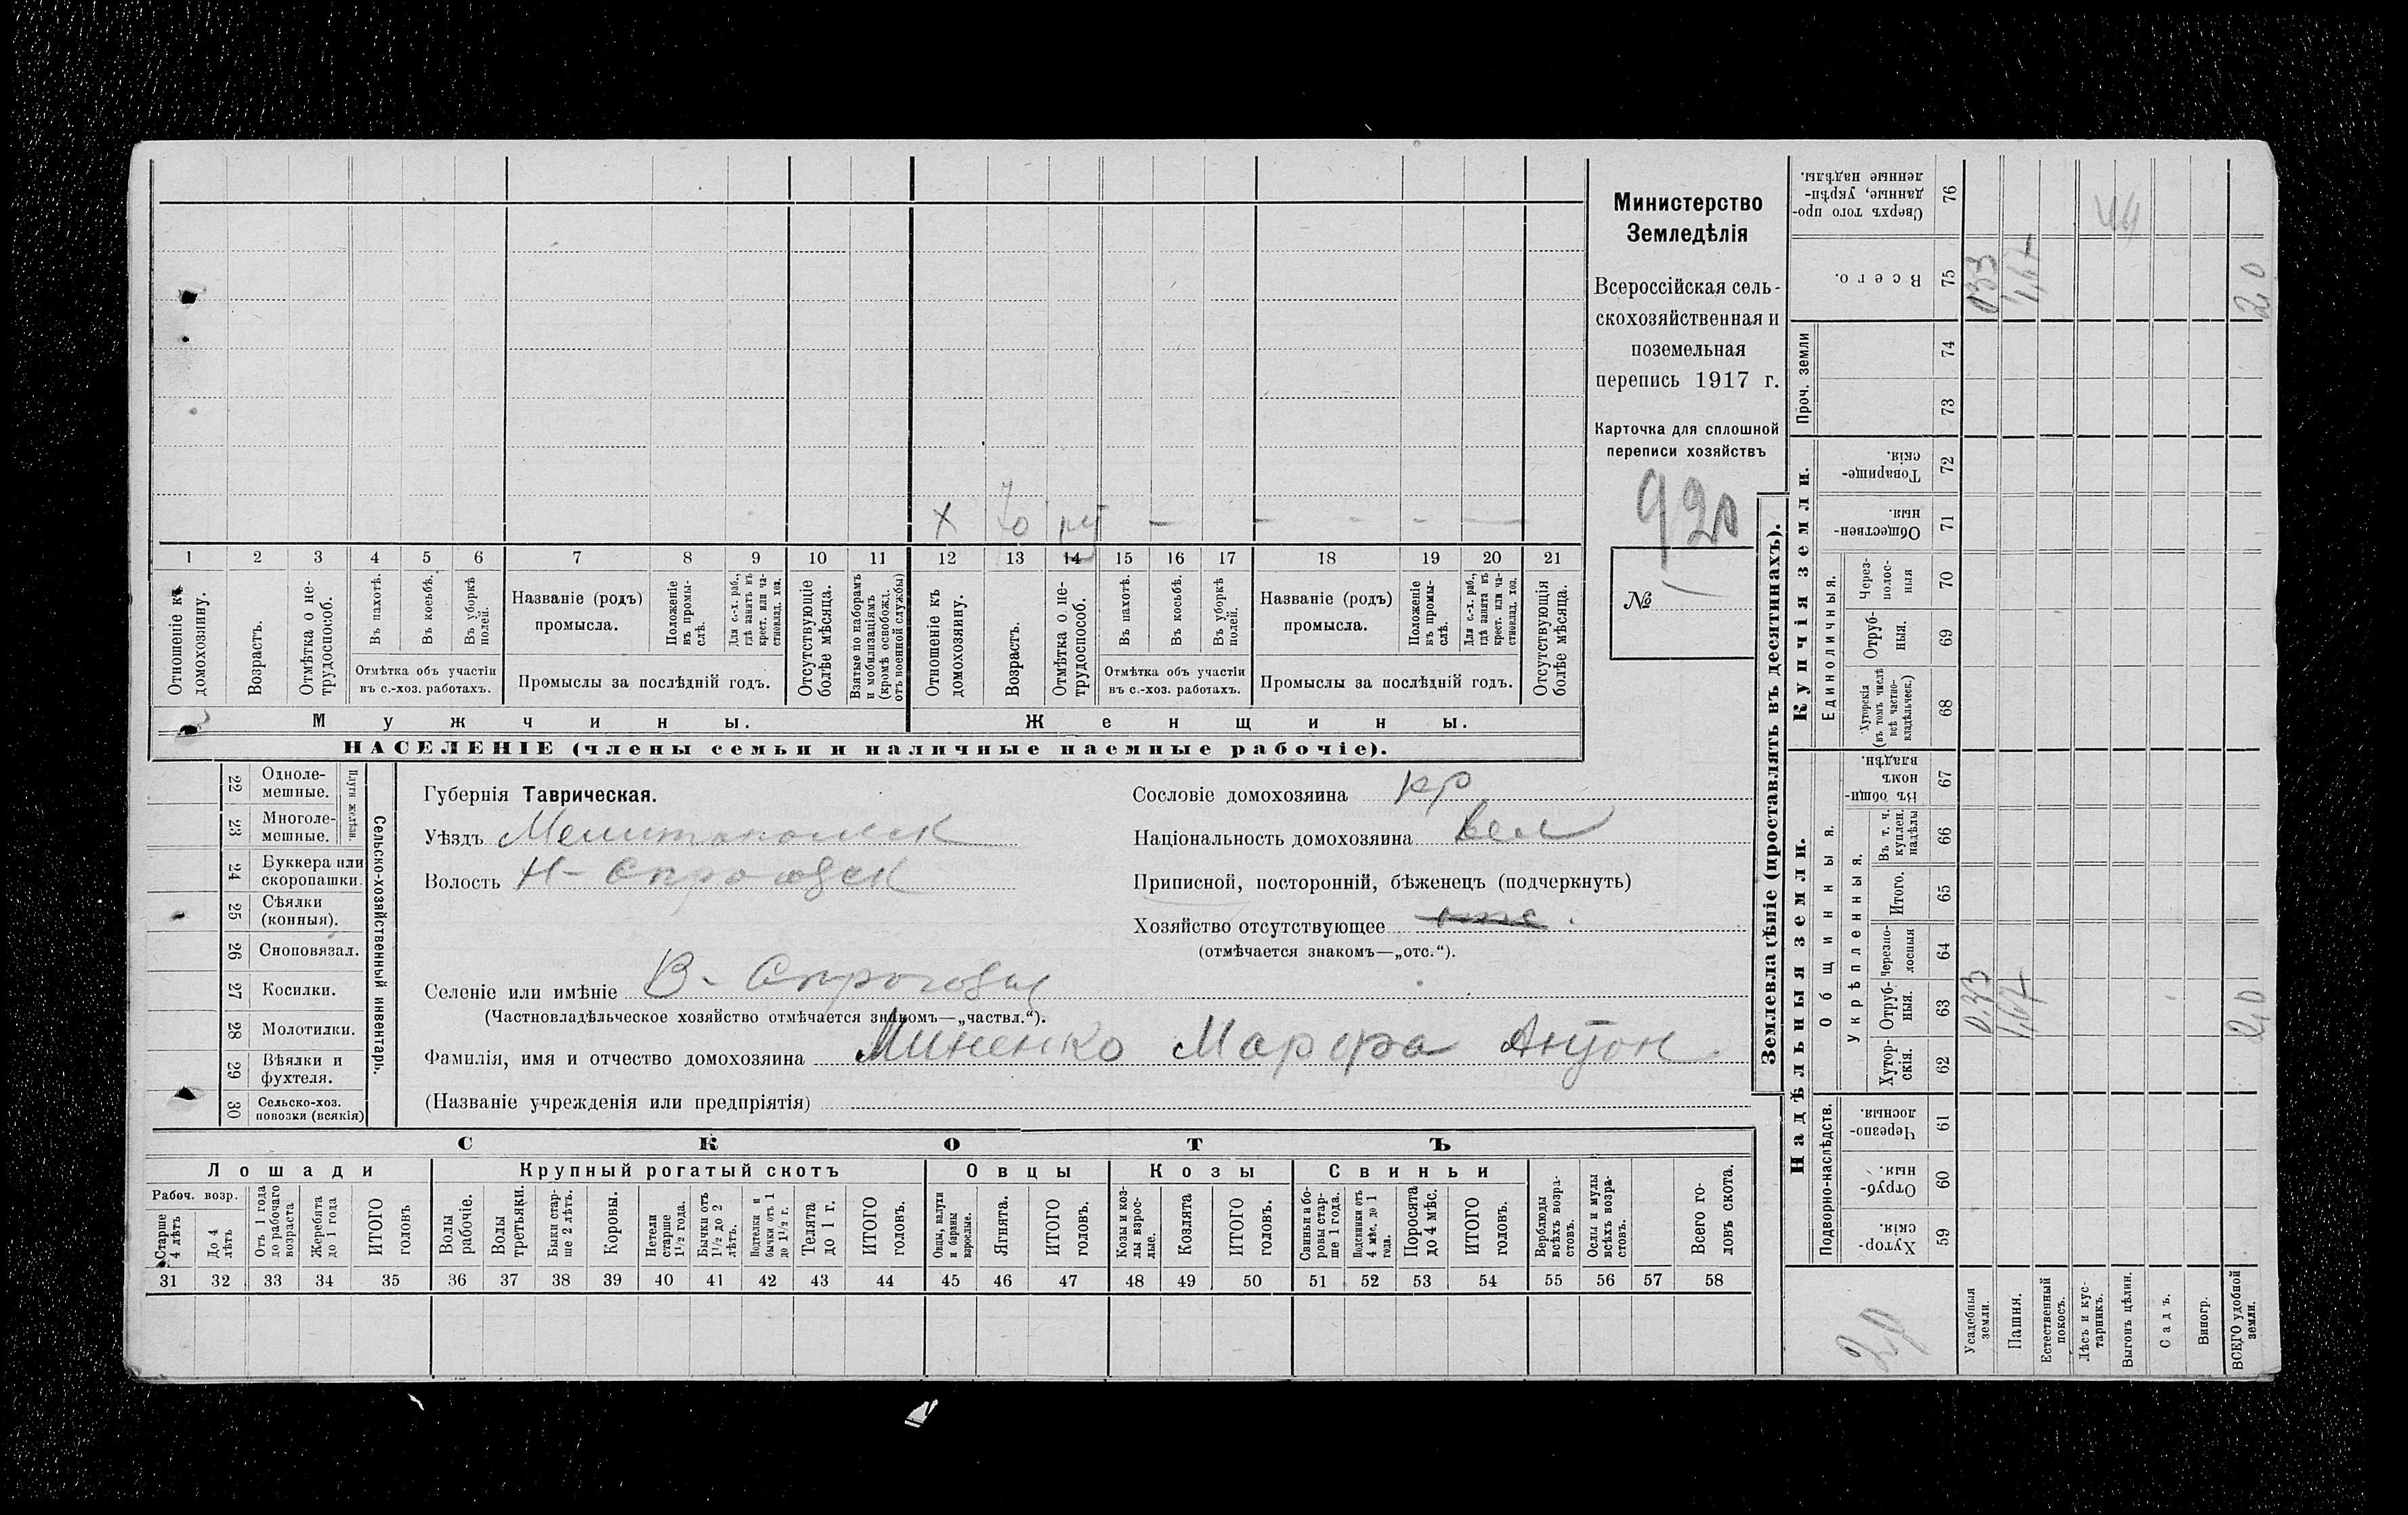 Министерство
Земледѣлія
Всероссійская сель-
скохозяйственная и
поземельная
перепись 1917 г.
Карточка для сплошной
переписи хозяйствъ
920
№
х 70 — — - - —
1 2 3 4 5 6 7 8 9 10 11 12 13 14 15 16 17 18 19 20 21
Отношеніе къ домохозяину.
Возрастъ.
Отмѣтка о не-трудоспособ.
Въ пахотѣ.
Въ косьбѣ.
Въ уборкѣ полей.
Отмѣтка объ участіи
въ с.-хоз. работахъ.
Названіе (родъ)
промысла.
Положеніе въ промы-слѣ.
Для с.-х. раб., гдѣ занятъ въ крест. или ча-стновлад. хоз.
Промыслы за послѣдній годъ.
Отсутствующіе болѣе мѣсяца.
Взятые по наборамъ и мобилизаціямъ (кромѣ освобожд. отъ военной службы)
Отношеніе къ домохозяину.
Возрастъ.
Отмѣтка о не-трудоспособ.
Въ пахотѣ.
Въ косьбѣ.
Въ уборкѣ полей.
Отмѣтка объ участіи
въ с.-хоз. работахъ.
Названіе (родъ)
промысла.
Положеніе въ промы-слѣ.
Для с.-х. раб., гдѣ занята въ крест. или ча-стновлад. хоз.
Промыслы за послѣдній годъ.
Отсутствующія болѣе мѣсяца.
Мужчины.
Женщины.
НАСЕЛЕНІЕ (члены семьи и наличные наемные рабочіе).
Сельско-хозяйственный инвентарь.
Плуги желѣзн.
22 Одноле-мешные.
23 Многоле-мешные.
24 Буккера или скоропашки.
25 Сѣялки (конныя).
26 Сноповязал.
27 Косилки.
28 Молотилки.
29 Вѣялки и фухтеля.
30 Сельско-хоз. повозки (всякія)
Губернія Таврическая.
Уѣздъ Мелитопольск
Волость Н-
Селеніе или имѣніе В-
(Частновладѣльческое хозяйство отмѣчается знакомъ—„частвл.“).
Фамилія, имя и отчество домохозяина Миненко Марфа Антон
(Названіе учрежденія или предпріятія)
Сословіе домохозяина кр
Національность домохозяина вел
Приписной, посторонній, бѣженецъ (подчеркнуть)
Хозяйство отсутствующее отс.
(отмѣчается знакомъ—„отс.“).
СКОТЪ
Лошади
Крупный рогатый скотъ
Овцы
Козы
Свиньи
Рабоч. возр.
Старше 4 лѣтъ
До 4 лѣтъ
Отъ 1 года до рабочаго возраста
Жеребята до 1 года
ИТОГО головъ
Волы рабочіе.
Волы третьяки.
Быки стар-ше 2 лѣтъ.
Коровы.
Нетели старше 1½ года.
Бычки отъ 1½ до 2 лѣтъ.
Подтелки и бычки отъ 1 до 1½ г.
Телята до 1 г.
ИТОГО головъ.
Овцы, валухи и бараны взрослые.
Ягнята.
ИТОГО головъ.
Козы и коз-лы взрос-лые.
Козлята
ИТОГО головъ.
Свиньи и бо-ровы стар-ше 1 года.
Подсвинки отъ 4 мѣс. до 1 года.
Поросята до 4 мѣс.
ИТОГО головъ.
Верблюды всѣхъ возра-стовъ.
Ослы и мулы всѣхъ возра-стовъ.
Всего го-ловъ скота.
31 32 33 34 35 36 37 38 39 40 41 42 43 44 45 46 47 48 49 50 51 52 53 54 55 56 57 58
Землевладѣніе (проставлять въ десятинахъ).
Надѣльныя земли.
Купчія земли.
Проч. земли
Подворно-наслѣдств.
Общинныя.
Укрѣпленныя.
Единоличныя.
Хутор-скія. 59
Отруб-ныя. 60
Черезпо-лосныя. 61
Хутор-скія. 62
Отруб-ныя. 63 0,33 1,67 2,0
Черезпо-лосныя 64
Итого. 65
Въ т. ч. куплен. надѣлы 66
Въ общин-номъ владѣн. 67
Хуторскія (въ томъ числѣ всѣ частно-владѣльческ.) 68
Отруб-ныя. 69
Через-полос-ныя 70
Обществен-ныя. 71
Товарище-скія. 72
73
74
Всего. 75 0,33 1,67 2,0
Сверхъ того про-данные, укрѣп-ленные надѣлы. 76
Усадебныя земли.
Пашня.
Естественный покосъ.
Лѣсъ и кус-тарникъ.
Выгонъ цѣлин.
Садъ.
Виногр.
ВСЕГО удобной земли.